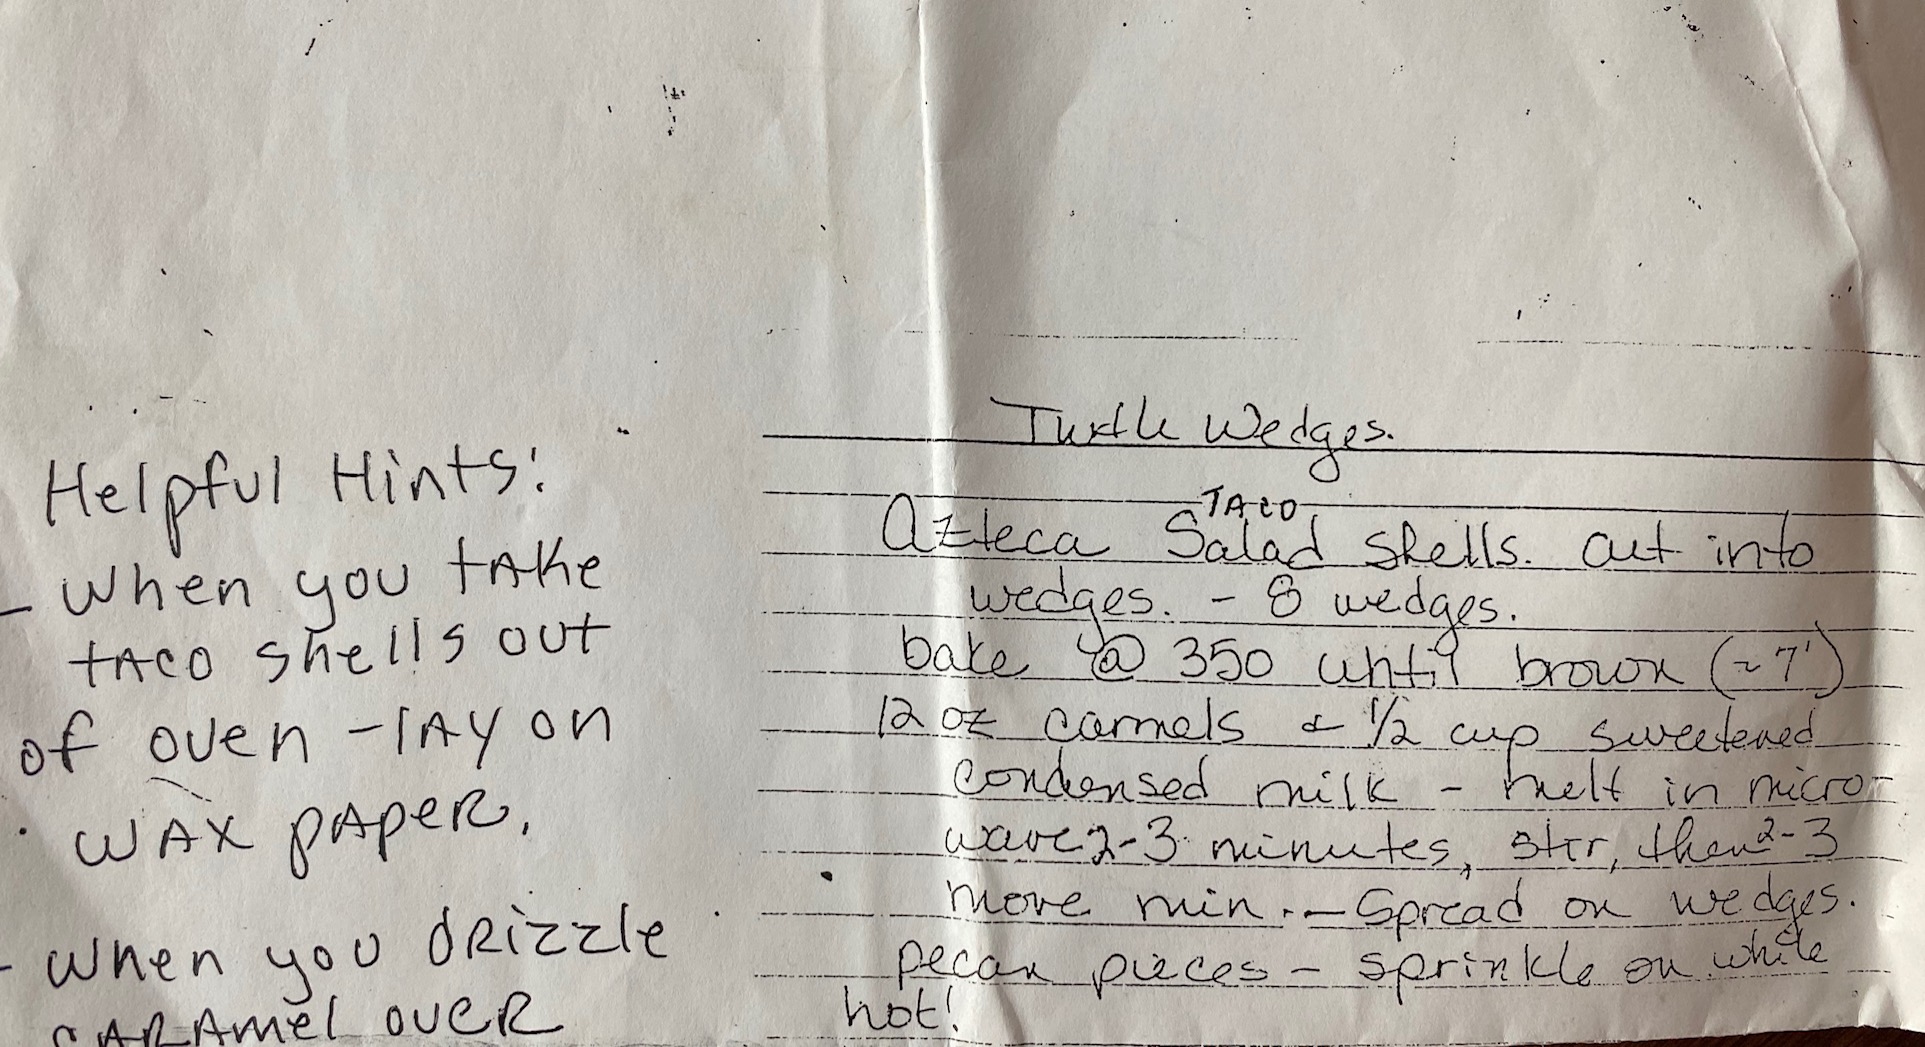 Helpful Hints:
- When you tAke
tACO shells out
of oven - lAy on
WAX pApeR.
- When you dRizzle
CARAmel oveR
Turtle Wedges.
TACO
Azteca Salad shells. Cut into
wedges. - 8 wedges.
bake @ 350 until brown (~7')
12 oz carmels & 1/2 cup sweetened
condensed milk - melt in micro-
wave 2-3 minutes, stir, then 2-3
more min. - Spread on wedges.
pecan pieces - sprinkle on while
hot!